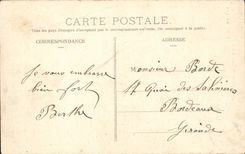 CARTE POSTALE
CORRESPONDANCE
ADRESSE
Je vous embrasse
bien fort
Berthe
Monsieur Borde
Quai des Salinières
Bordeaux
Gironde